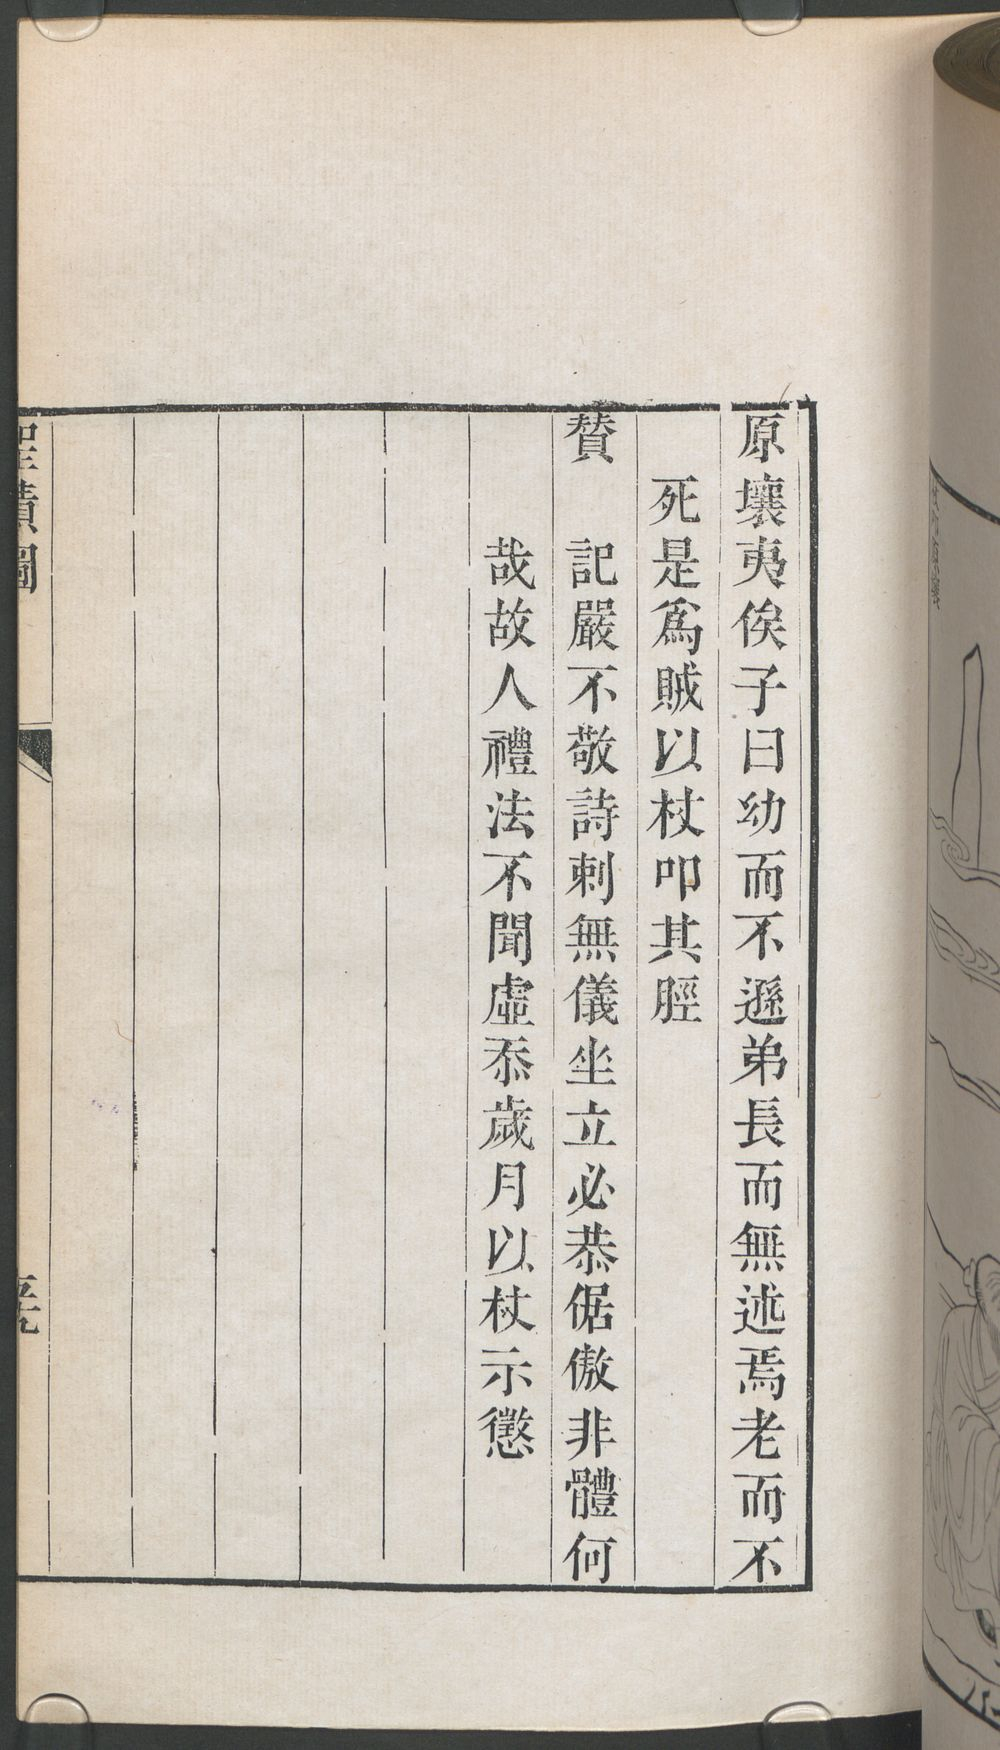 原壤夷俟子曰幼而不遜弟長而無述焉老而不
死是爲賊以杖叩其脛
賛 記嚴不敬詩刺無儀坐立必恭倨傲非體何
哉故人禮法不聞虛忝歲月以杖示懲
聖蹟圖